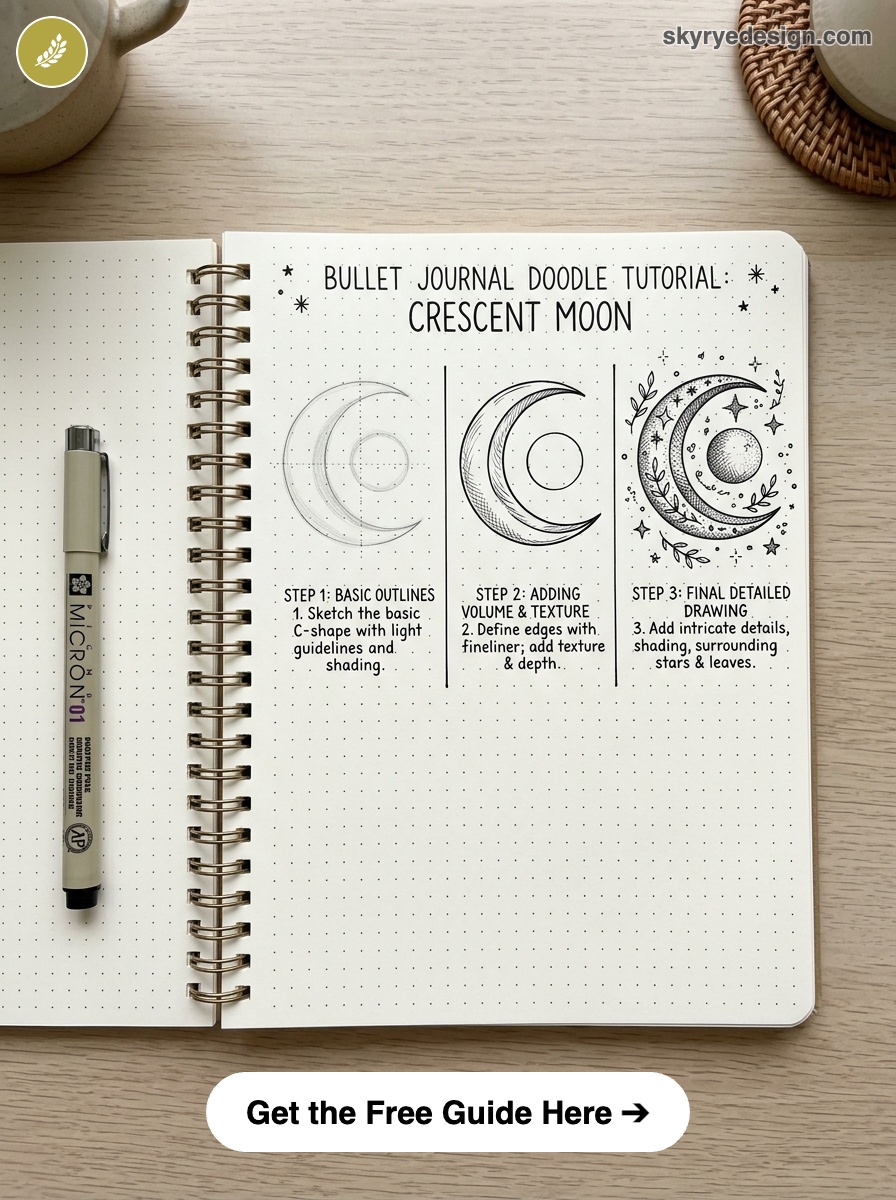 skyryedesign.com
BULLET JOURNAL DOODLE TUTORIAL:
CRESCENT MOON
STEP 1: BASIC OUTLINES
1. Sketch the basic
C-shape with light
guidelines and
shading.
STEP 2: ADDING
VOLUME & TEXTURE
2. Define edges with
fineliner; add texture
& depth.
STEP 3: FINAL DETAILED
DRAWING
3. Add intricate details,
shading, surrounding
stars & leaves.
PIGMA
MICRON 01
AP
Get the Free Guide Here ➔